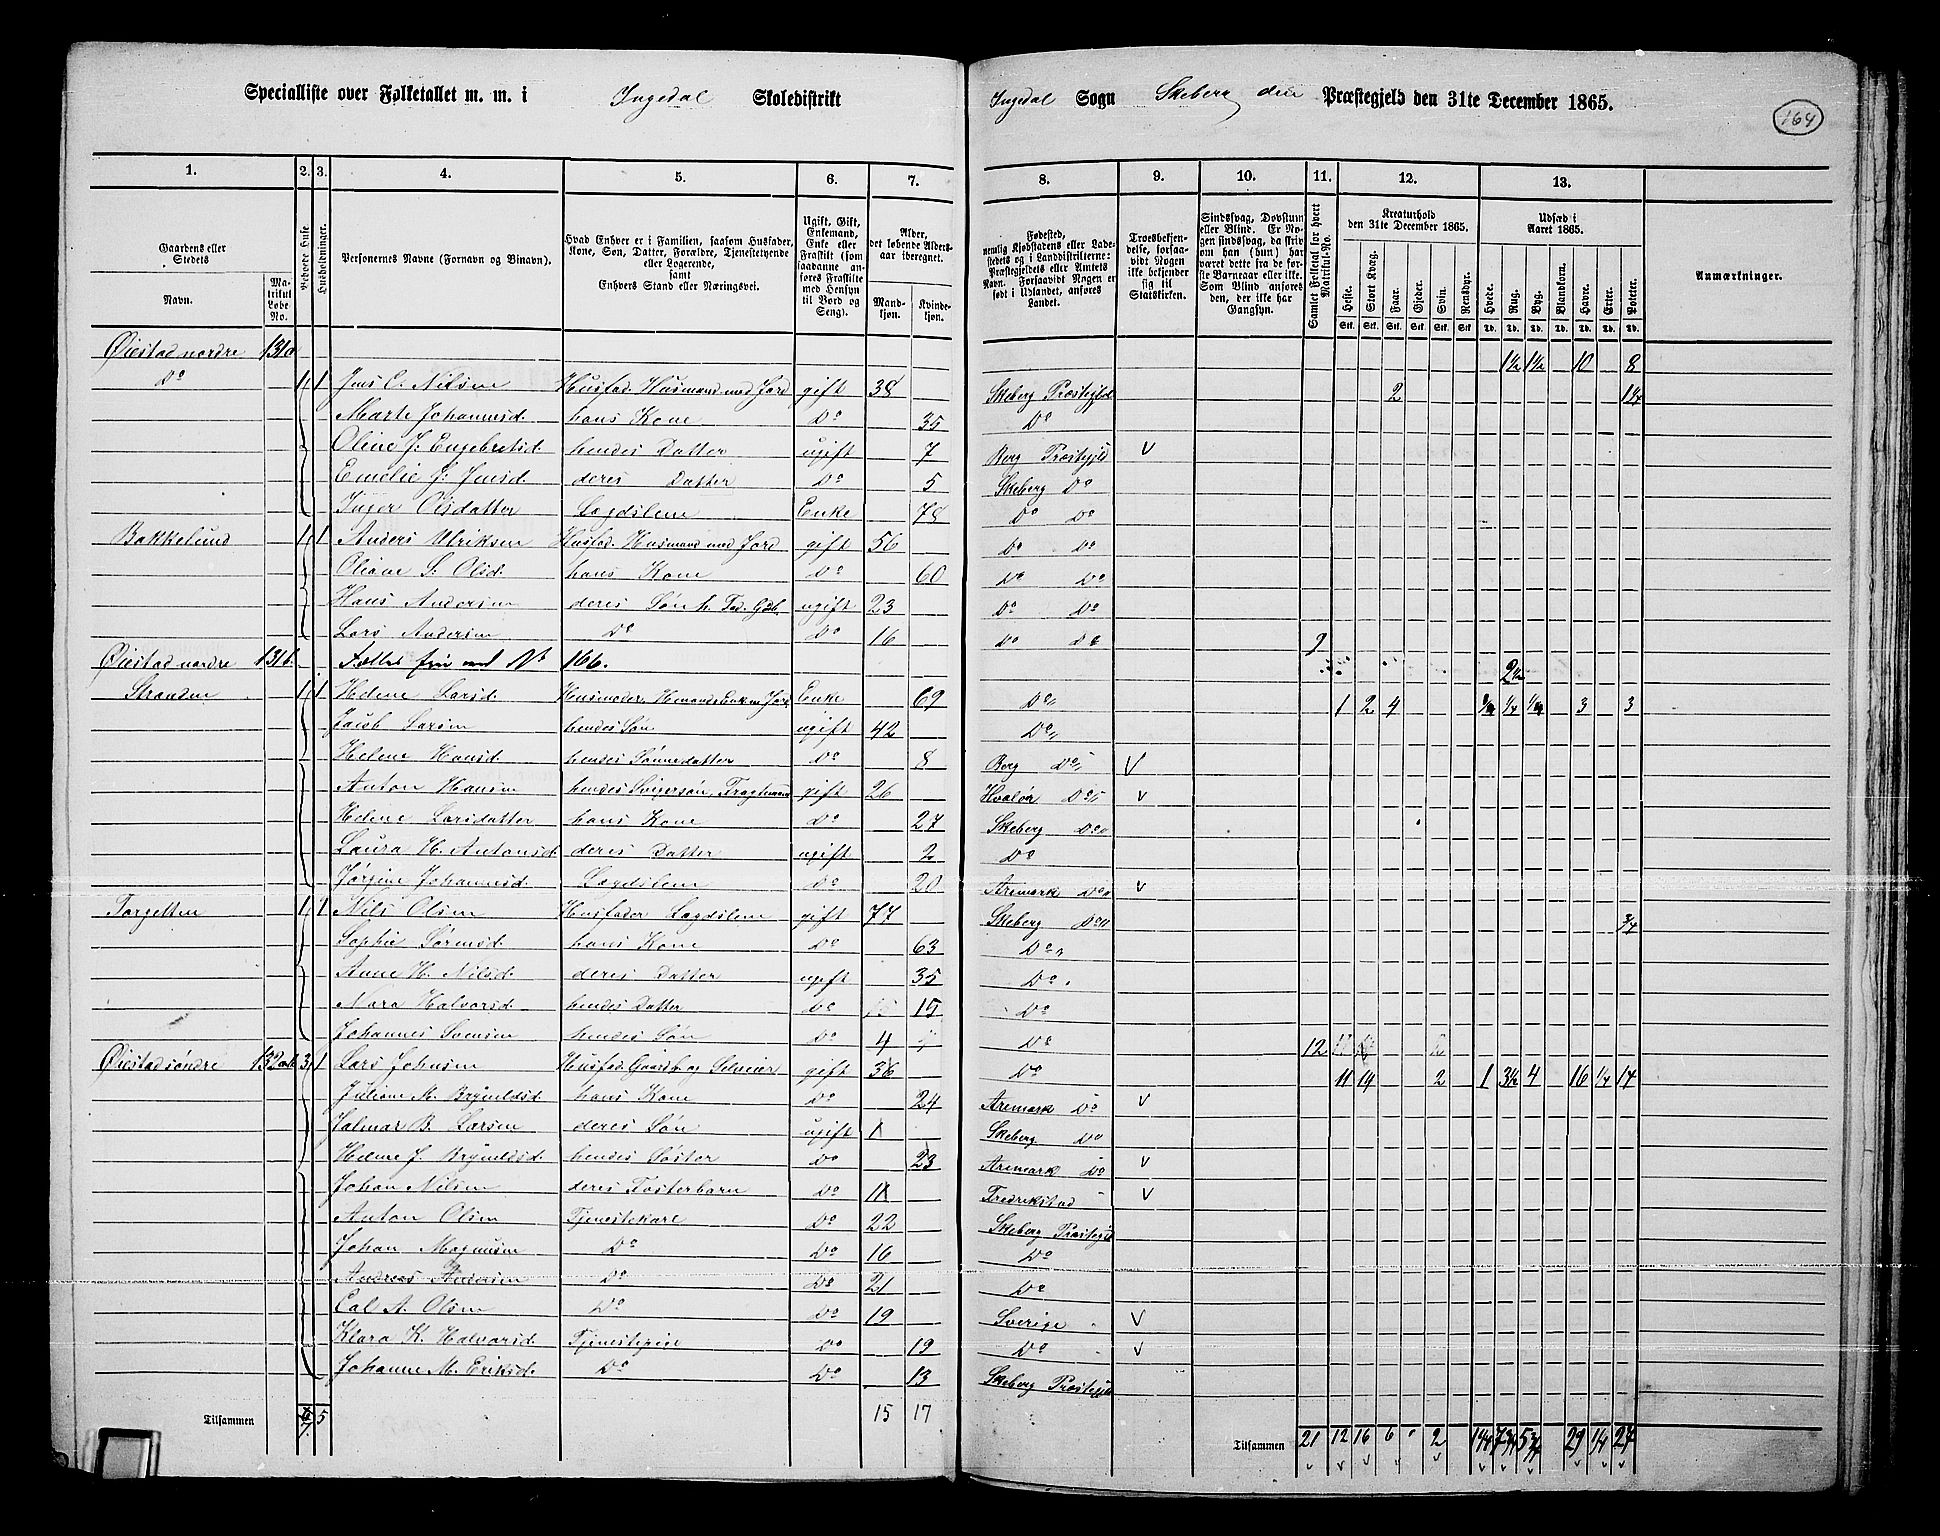 Specialliste over Folketallet m. m. i Ingedal Skoledistrikt Ingedal Sogn Skeberg Præstegjeld den 31te December 1865.
164
1. 2. 3. 4. 5. 6. 7. 8. 9. 10. 11. 12. 13.
Gaardens eller Stedets Navn. Matrikul Løbe-No. Beboede Huse. Husholdninger. Personernes Navne (Fornavn og Binavn). Hvad Enhver er i Familien, saasom Husfader, Kone, Søn, Datter, Forældre, Tjenestetyende eller Logerende, samt Enhvers Stand eller Næringsvei. Ugift, Gift, Enkemand, Enke eller Fraskilt (som saadanne anføres Fraskilte med Hensyn til Bord og Seng). Alder, det løbende Alders-aar iberegnet. Mand-kjøn. Kvinde-kjøn.
Fødested, nemlig Kjøbstadens eller Ladestedets eller i Landdistrikterne: Præstegjeldets eller Amtets Navn. Forsaavidt Nogen er født i Udlandet, anføres Landet. Troesbekjendelse, forsaavidt Nogen ikke bekjender sig til Statskirken. Sindssvag, Døvstum eller Blind. Er Nogen sindssvag, da skriv om han (hun) har været dette fra de første Barneaar eller ikke. Som Blind anføres den, der ikke har Gangsyn. Samlet Folketal for hvert Matrikul-No. Kreaturhold den 31te December 1865. Heste. Stort Kvæg. Faar. Gjeder. Svin. Rensdyr. Udsæd i Aaret 1865. Hvede. Rug. Byg. Blandkorn. Havre. Erter. Poteter. Anmærkninger.
Stk. Stk. Stk. Stk. Stk. Stk. Td. Td. Td. Td. Td. Td. Td.
Øiestad nordre 131a 1½ 1½ 10 8
Do 1 1 Jens C. Nilsen Husfad. Husmand med Jord gift 38 Skeberg Præstegjeld 2 1¼
Marte Johannesd. hans Kone Do 35 Do
Oline J. Engebretsd. hendes Datter ugift 7 Berg Præstegjeld V
Emelie G. Jensd. deres Datter Do 5 Skeberg Do
Inger Olsdatter Lægdslem Enke 78 Do Do
Bakkelund 1 1 Anders Ulriksen Husfad. Husmand med Jord gift 56 Do Do
Oliane S. Olsd. hans Kone Do 60 Do Do
Hans Andersen deres Søn h. Fad. Gdb. ugift 23 Do Do
Lars Andersen Do Do 16 Do Do 9
Øiestad nordre 131b. 166. 2½
Stranden 1 1 Helene Larsd. Husmoder, Enke 69 Do 1 2 4 ¼ 3 3
Jacob Larsen hendes Søn ugift 42 Do
Helene Hansd. hendes Sønnedatter Do 8 Berg Do V
Anton Hansen hendes Svigersøn, Fragtmand gift 26 Hvaløe Do V
Helene Larsdatter hans Kone Do 27 Skeberg Do
Laura H. Antonsd. deres Datter ugift 2 Do
Jørgine Johannesd. Lægdslem Do 20 Aremark Do V
Torgetten 1 1 Nils Olsen Husfader Lægdslem gift 77 Skeberg Do ¾
Sophie Sørensd. hans Kone Do 63 Do
Anne H. Nilsd. deres Datter ugift 35 Do
Nora Halvorsd. hendes Datter Do 15 Do
Johannes Svensen hendes Søn Do 4 Do 12
Øiestad søndre 132 3 1 Lars Johnsen Husfad. Gaardb. og Selveier gift 36 Do 11 14 2 1 3½ 4 16 ¼ 14
Juliane M. Brynildsd. hans Kone Do 24 Aremark Do V
Jalmar B. Larsen deres Søn ugift 1 Skeberg Do
Helene J. Brynildsd. hendes Søster Do 23 Aremark Do V
Johan Nilsen deres Fosterbarn Do 11 Fredrikstad V
Anton Olsen Tjenestekarl Do 22 Skeberg Præstegjeld
Johan Magnusen Do Do 16 Do
Andreas Do Do 21 Do
Carl A. Olsen Do Do 19 Sverige V
Klara K. Halvorsd. Tjenestepige Do 19 Do V
Johanne M. Eriksd. Do Do 13 Skeberg Præstegjeld
Tilsammen 7 5 15 17 Tilsammen 21 12 16 6 2 1¼ 7¾ 5¾ 29 ¼ 27